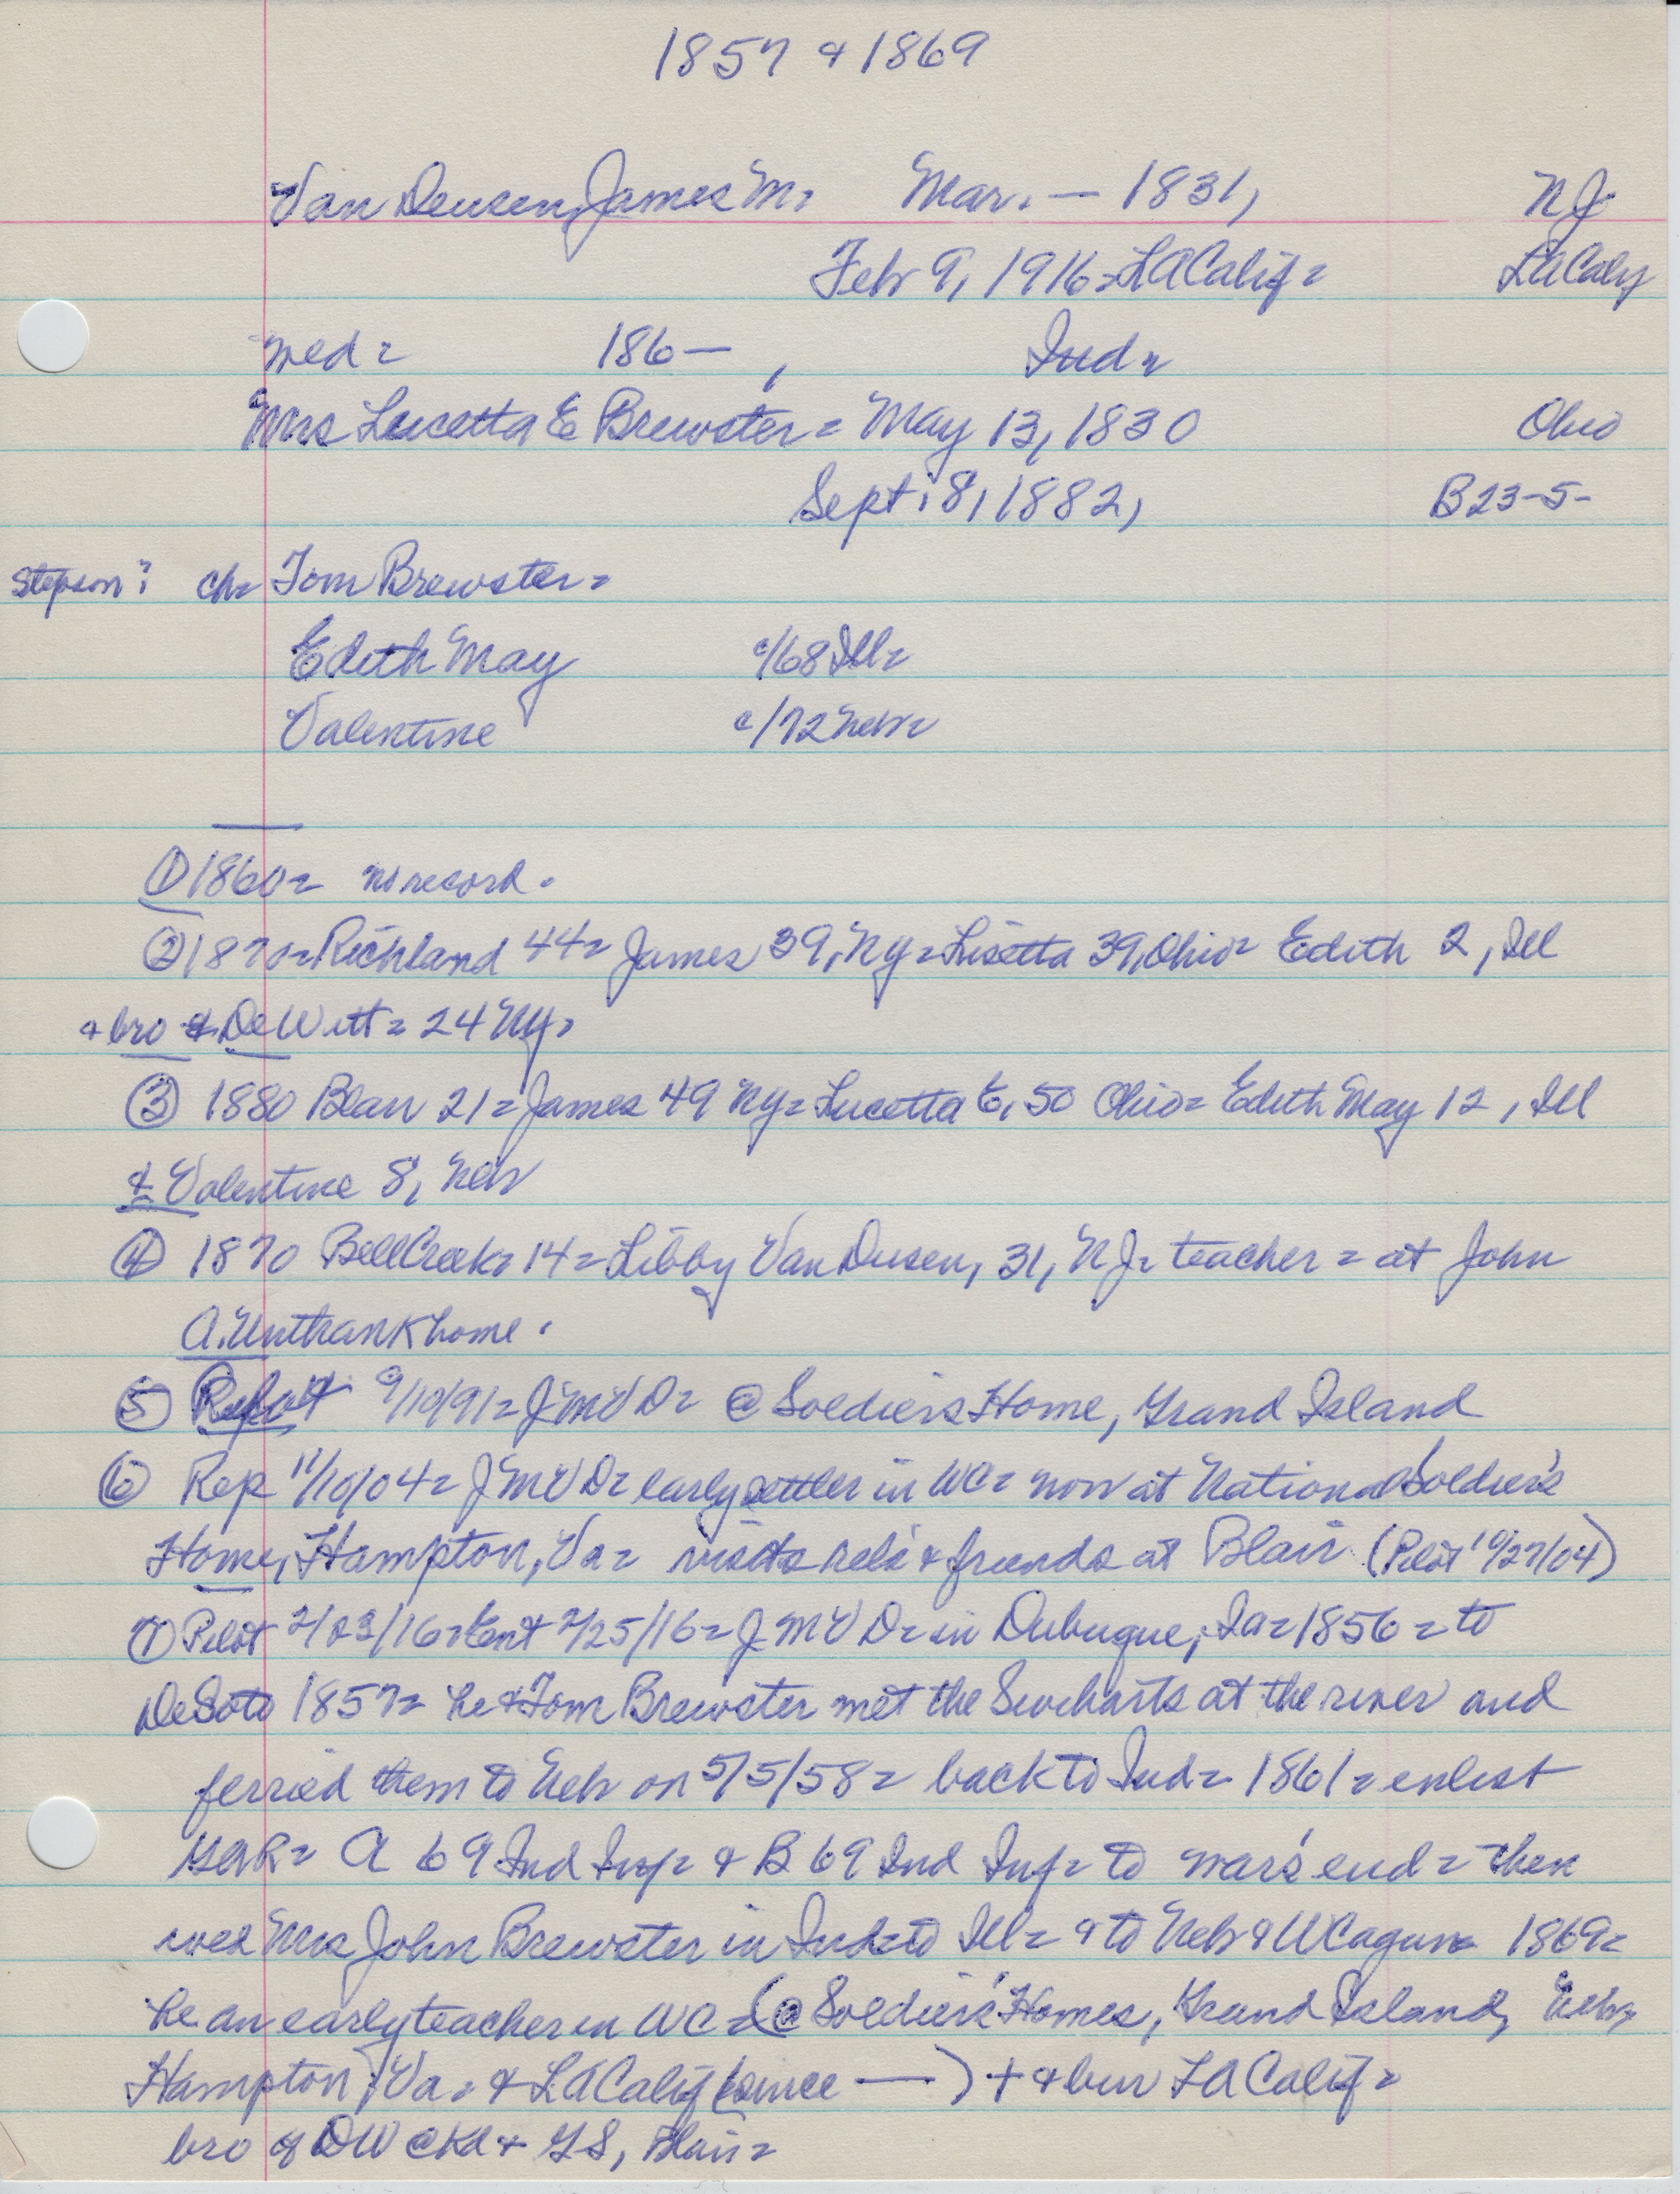 1857 & 1869
Van Deusen, James M. Mar. — 1831, NJ
Feb 9, 1916 = LA Calif = LA Calif
wed = 186—, Ind =
Mrs Lucetta E Brewster = May 13, 1830 Ohio
Sept. 8, 1882, B23-5-
Stepson? ch = Tom Brewster =
Edith May c/68 Ill =
Valentine c/72 Nebr =
① 1860 = no record.
② 1870 = Richland 44 = James 39, NY = Lisetta 39, Ohio = Edith 2, Ill
& bro DeWitt = 24 NY.
③ 1880 Blair 21 = James 49 NY = Lucetta E, 50 Ohio = Edith May 12, Ill
& Valentine 8, Neb
④ 1870 Bell Creek = 14 = Libby Van Dusen, 31, NJ = teacher = at John
A. Unthank home.
⑤ 9/10/91 = J M V D = @ Soldiers Home, Grand Island
⑥ Rep 11/10/04 = J M V D = early settler in WC = now at National Soldier's
Home, Hampton, Va = visits rels & friends at Blair (Pilot 10/27/04)
⑦ Pilot 2/23/16 = Ent 2/25/16 = J M V D = in Dubuque, Ia = 1856 = to
DeSoto 1857 = he & Tom Brewster met the Swiharts at the river and
ferried them to Neb on 5/5/58 = back to Ind = 1861 = enlist
GAR = A 69 Ind Inf = & B 69 Ind Inf = to war's end = then
wed Mrs John Brewster in Ind = to Ill = & to Neb & WC again 1869 =
he an early teacher in WC = (@ Soldiers' Homes, Grand Island, Neb,
Hampton, Va. & LA Calif (since —) + & bur LA Calif =
bro of DW & GS, Blair =